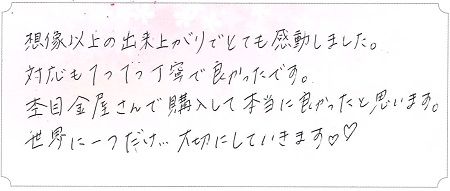 想像以上の出来上がりでとても感動しました。
対応も1つ1つ丁寧で良かったです。
杢目金屋さんで購入して本当に良かったと思います。
世界に一つだけ… 大切にしていきます♡♡